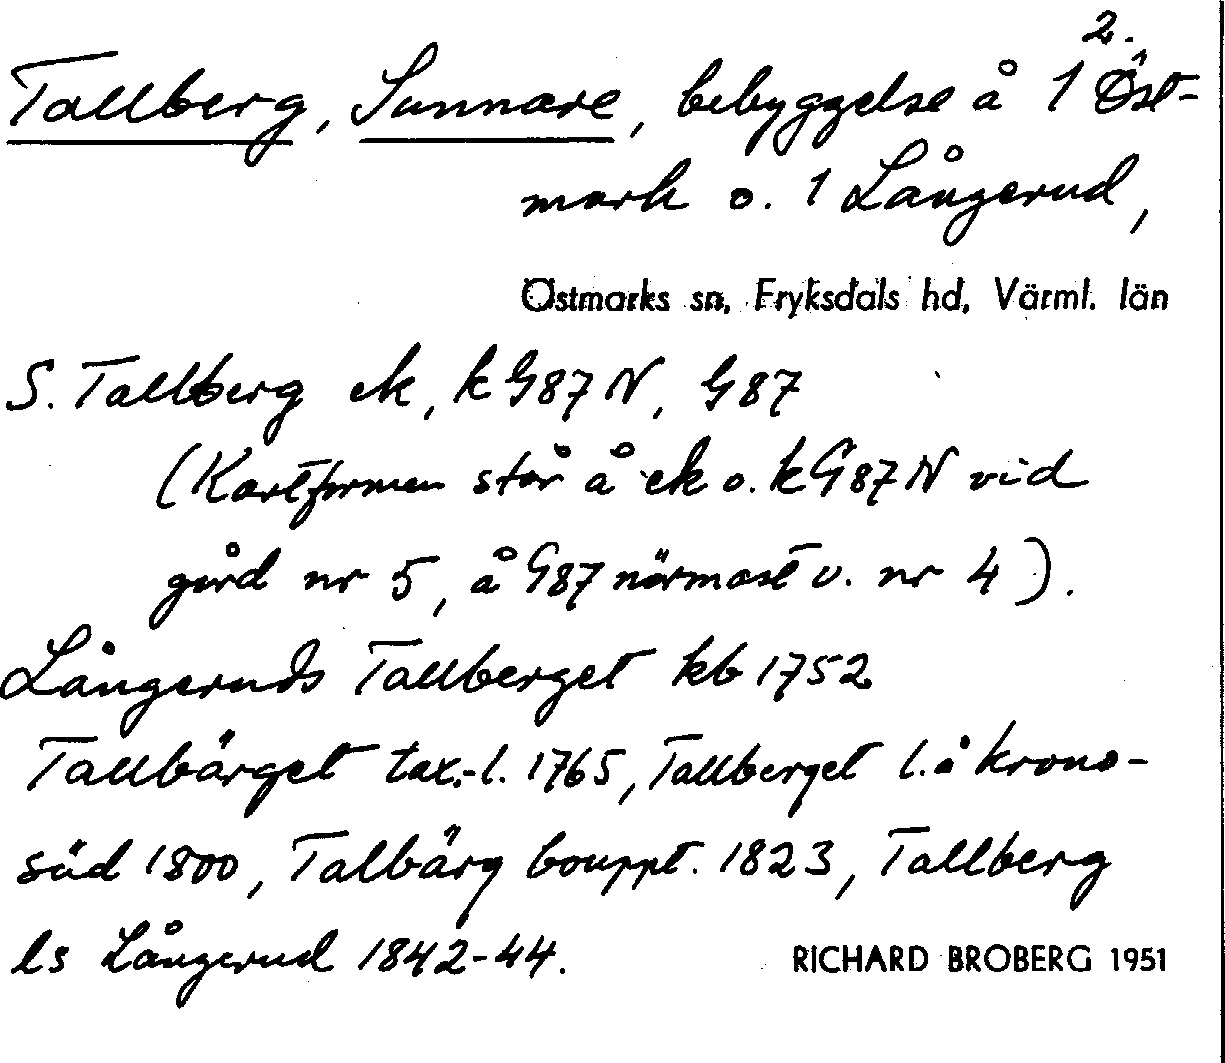 2.
Tallberg, Sunnare, bebyggelse å 1 Öst-
mark o. 1 Långerud,
Östmarks sn, Fryksdals hd, Värml. län
S. Tallberg ek, kG87N, G87
(Kartformen står å ek o. kG87N vid
gård nr 5, å G87 närmast v. nr 4).
Långeruds Tallberget kb 1752
Tallbärget tax.-l. 1765, Tallberget l. å krono-
säd 1800, Talbärg bouppt. 1823, Tallberg
ls Långerud 1842-44.
RICHARD BROBERG 1951